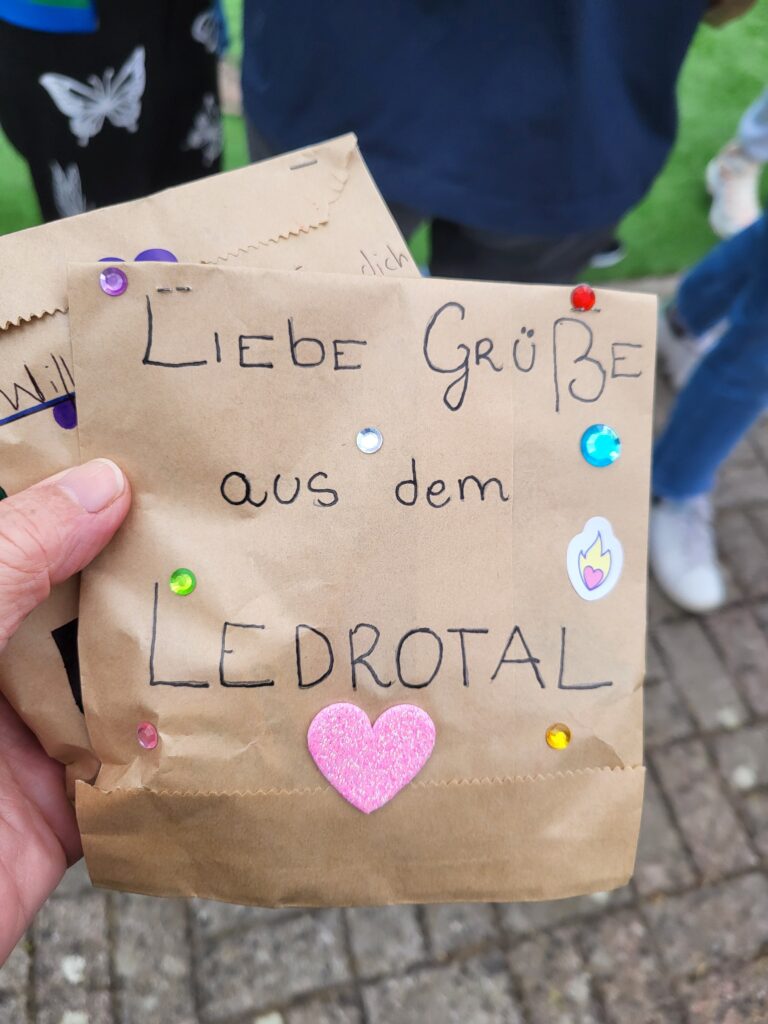 dich
Will
Liebe Grüße
aus dem
LEDROTAL